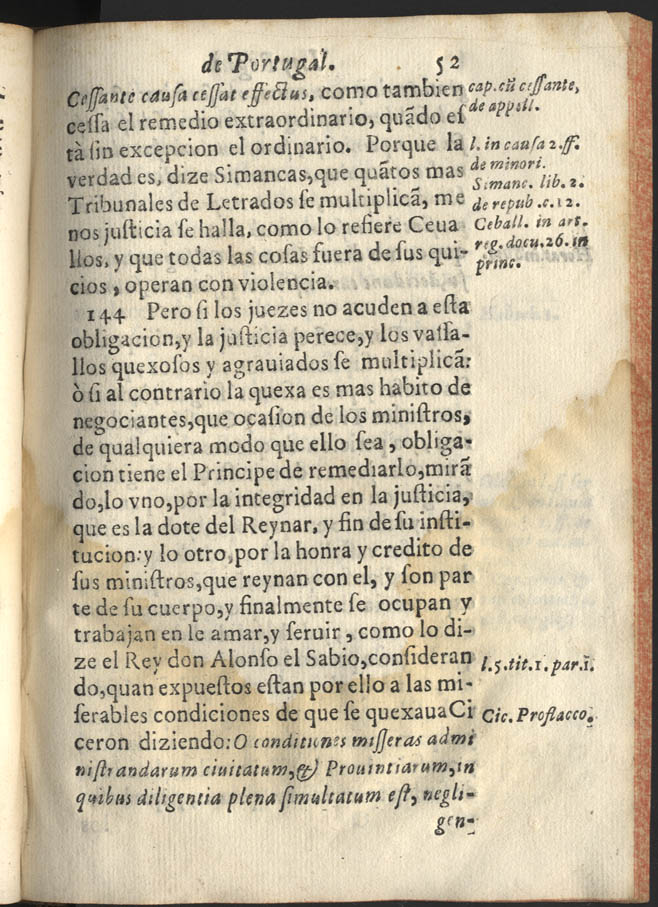 de Portugal. 52
Ceſſante cauſa ceſſat effectus, como tambien
ceſſa el remedio extraordinario, quãdo eſ
tà ſin excepcion el ordinario. Porque la
verdad es, dize Simancas, que quãtos mas
Tribunales de Letrados ſe multiplicã, me
nos juſticia ſe halla, como lo refiere Ceua
llos, y que todas las coſas fuera de ſus qui-
cios, operan con violencia.
144 Pero ſi los juezes no acuden a eſta
obligacion, y la juſticia perece, y los vaſſa-
llos quexoſos y agrauiados ſe multiplicã:
ò ſi al contrario la quexa es mas habito de
negociantes, que ocaſion de los miniſtros,
de qualquiera modo que ello ſea, obliga-
cion tiene el Principe de remediarlo, mirã
do, lo vno, por la integridad en la juſticia,
que es la dote del Reynar, y fin de ſu inſti-
tucion: y lo otro, por la honra y credito de
ſus miniſtros, que reynan con el, y ſon par
te de ſu cuerpo, y finalmente ſe ocupan y
trabajan en le amar, y ſeruir, como lo di-
ze el Rey don Alonſo el Sabio, conſideran
do, quan expueſtos eſtan por ello a las mi-
ſerables condiciones de que ſe quexaua Ci
ceron diziendo: O conditiones miſſeras admi
niſtrandarum ciuitatum, & Prouintiarum, in
quibus diligentia plena ſimultatum eſt, negli-
gen-
cap. cũ ceſſante,
de appell.
l. in cauſa 2. ff.
de minori.
Simanc. lib. 2.
de repub. c. 12.
Ceball. in art.
reg. docu. 26. in
princ.
l. 5. tit. 1. par. 1.
Cic. Proflacco.